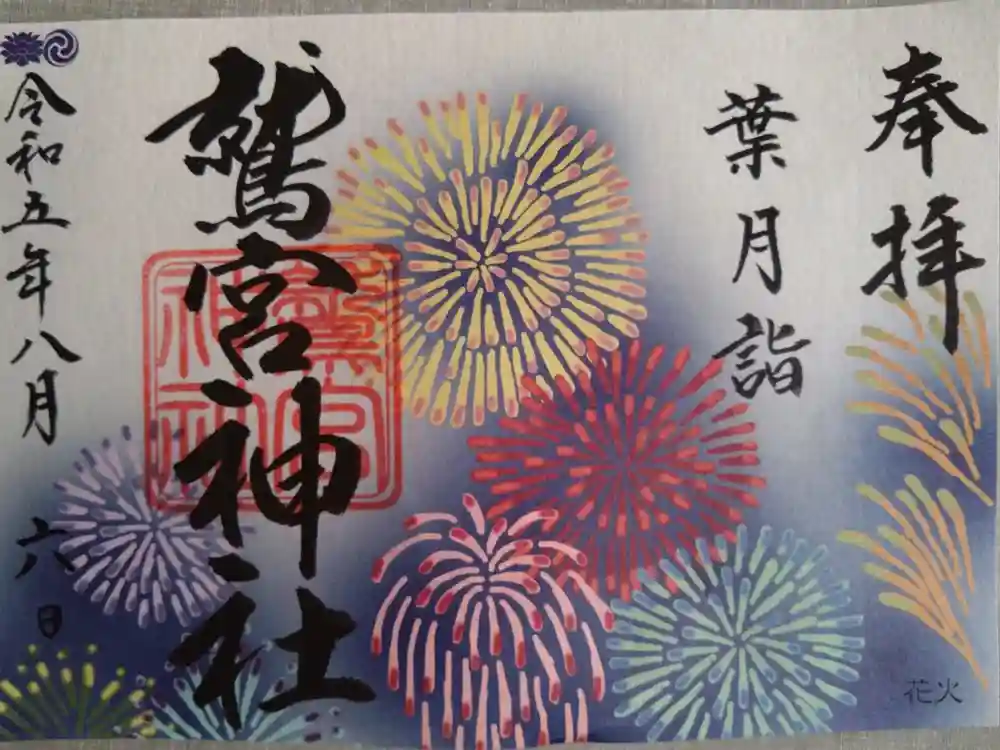 奉拝
葉月詣
鷲宮神社
令和五年八月六日
花火